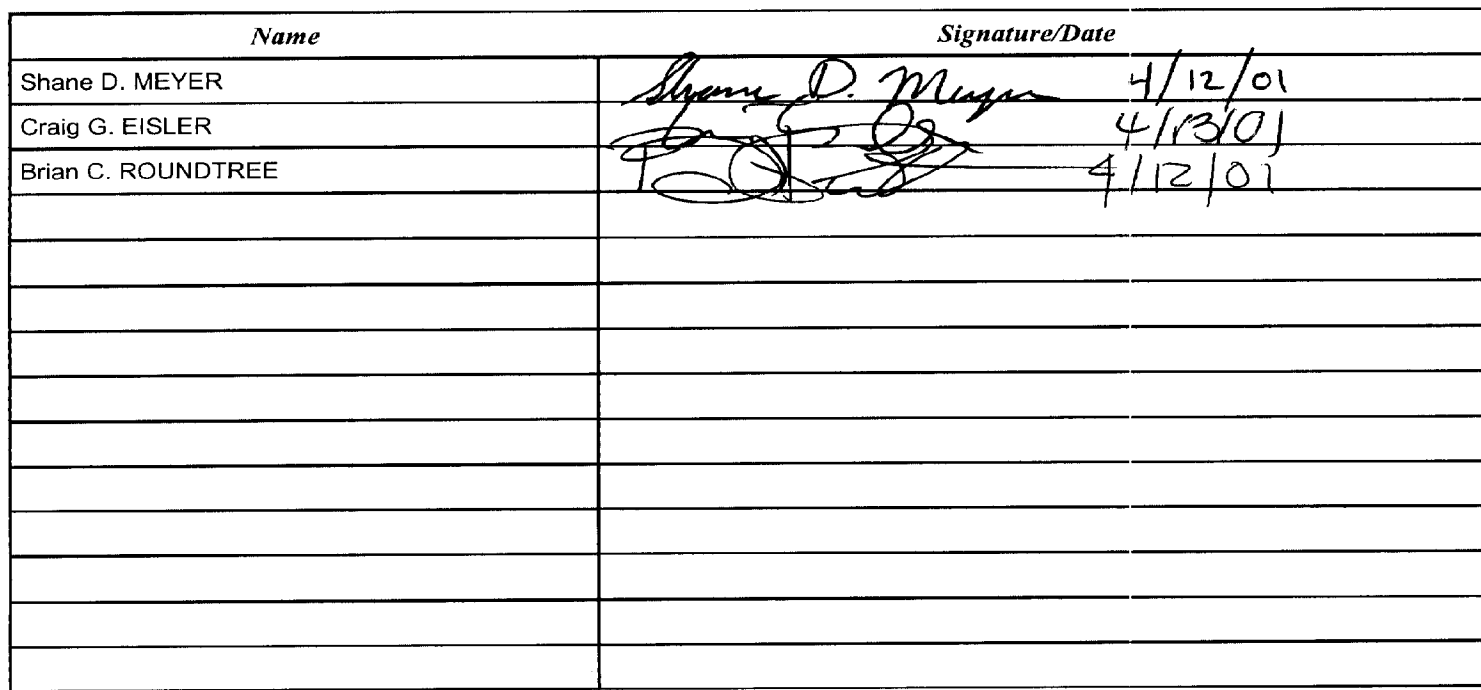 Name Signature/Date
Shane D. MEYER Shane D. Meyer 4/12/01
Craig G. EISLER 4/13/01
Brian C. ROUNDTREE 4/12/01